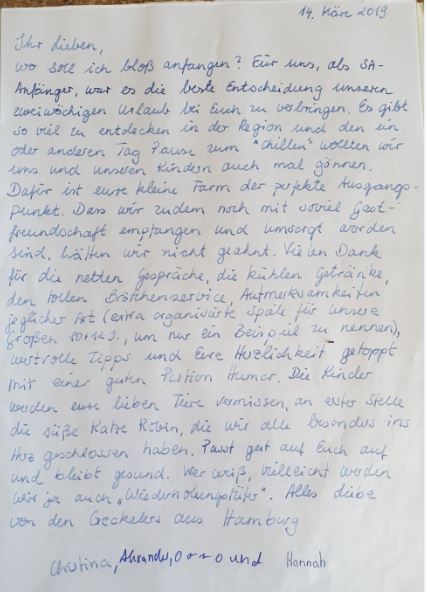 14. März 2019
Ihr lieben,
wo soll ich bloß anfangen? Für uns, als SA-
Anfänger, war es die beste Entscheidung unseren
zweiwöchigen Urlaub bei Euch zu verbringen. Es gibt
so viel zu entdecken in der Region und den ein
oder anderen Tag Pause zum "chillen" wollten wir
uns und unseren Kindern auch mal gönnen.
Dafür ist eure kleine Farm der perfekte Ausgangs-
punkt. Dass wir zudem noch mit soviel Gast-
freundschaft empfangen und umsorgt worden
sind, hätten wir nicht geahnt. Vielen Dank
für die netten Gespräche, die kühlen Getränke,
den tollen Brötchenservice, Aufmerksamkeiten
jeglicher Art (extra organisierte für unsere
großen um nur ein Beispiel zu nennen),
wertvolle Tipps und Eure Herzlichkeit getoppt
mit einer guten Portion Humor. Die Kinder
werden eure lieben Tiere vermissen, an erster Stelle
die süße Katze Robin, die wir alle besonders ins
Herz geschlossen haben. Passt gut auf Euch auf
und bleibt gesund. Wer weiß, vielleicht werden
wir ja auch „Wiederholungstäter". Alles Liebe
von den Geckelers aus Hamburg
Christina, und Hannah